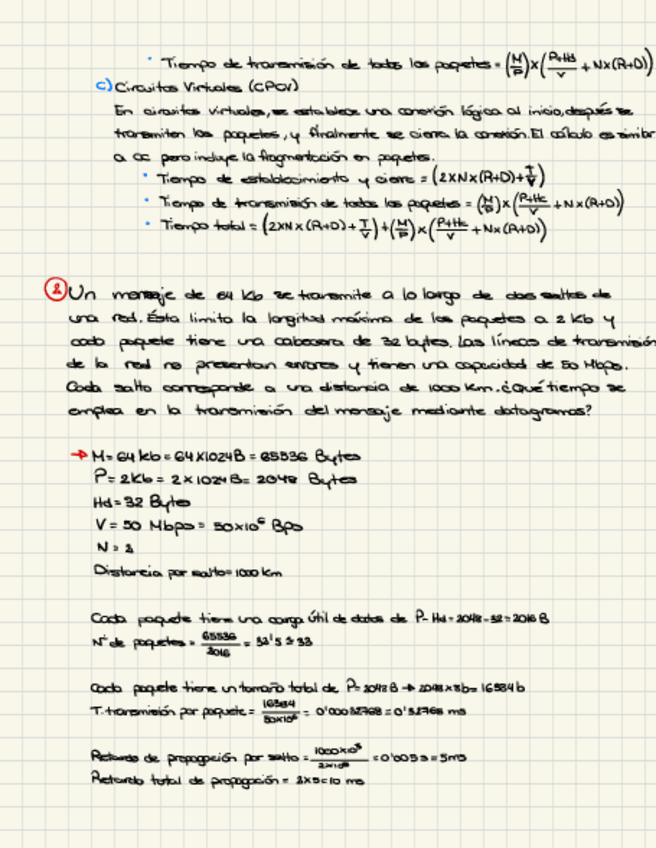 · Tiempo de transmisión de todos los paquetes = (M/P)×(P+Hd/V + N×(R+D))
c) Circuitos Virtuales (CPCV)
En circuitos virtuales, se establece una conexión lógica al inicio, después se
transmiten los paquetes, y finalmente se cierra la conexión. El cálculo es similar
a CC pero incluye la fragmentación en paquetes.
· Tiempo de establecimiento y cierre = (2×N×(R+D)+T/V)
· Tiempo de transmisión de todos los paquetes = (M/P)×(P+Hc/V + N×(R+D))
· Tiempo total = (2×N×(R+D)+T/V)+(M/P)×(P+Hc/V + N×(R+D))
2 Un mensaje de 64 Kb se transmite a lo largo de dos saltos de
una red. Ésta limita la longitud máxima de los paquetes a 2 Kb y
cada paquete tiene una cabecera de 32 bytes. Las líneas de transmisión
de la red no presentan errores y tienen una capacidad de 50 Mbps.
Cada salto corresponde a una distancia de 1000 Km. ¿Qué tiempo se
emplea en la transmisión del mensaje mediante datagramas?
→ M= 64 kb = 64×1024B = 65536 Bytes
P= 2Kb = 2×1024B= 2048 Bytes
Hd=32 Bytes
V= 50 Mbps= 50×10⁶ Bps
N = 2
Distancia por salto=1000 km
Cada paquete tiene una carga útil de datos de P-Hd=2048-32=2016B
Nº de paquetes = 65536/2016 = 32'5 ≈ 33
Cada paquete tiene un tamaño total de P=2048B → 2048×8b= 16384b
T. transmisión por paquete = 16384/50×10⁶ = 0'00032768=0'32768 ms
Retardo de propagación por salto = 1000×10³/2×10⁸ =0'005s=5ms
Retardo total de propagación = 2×5=10 ms